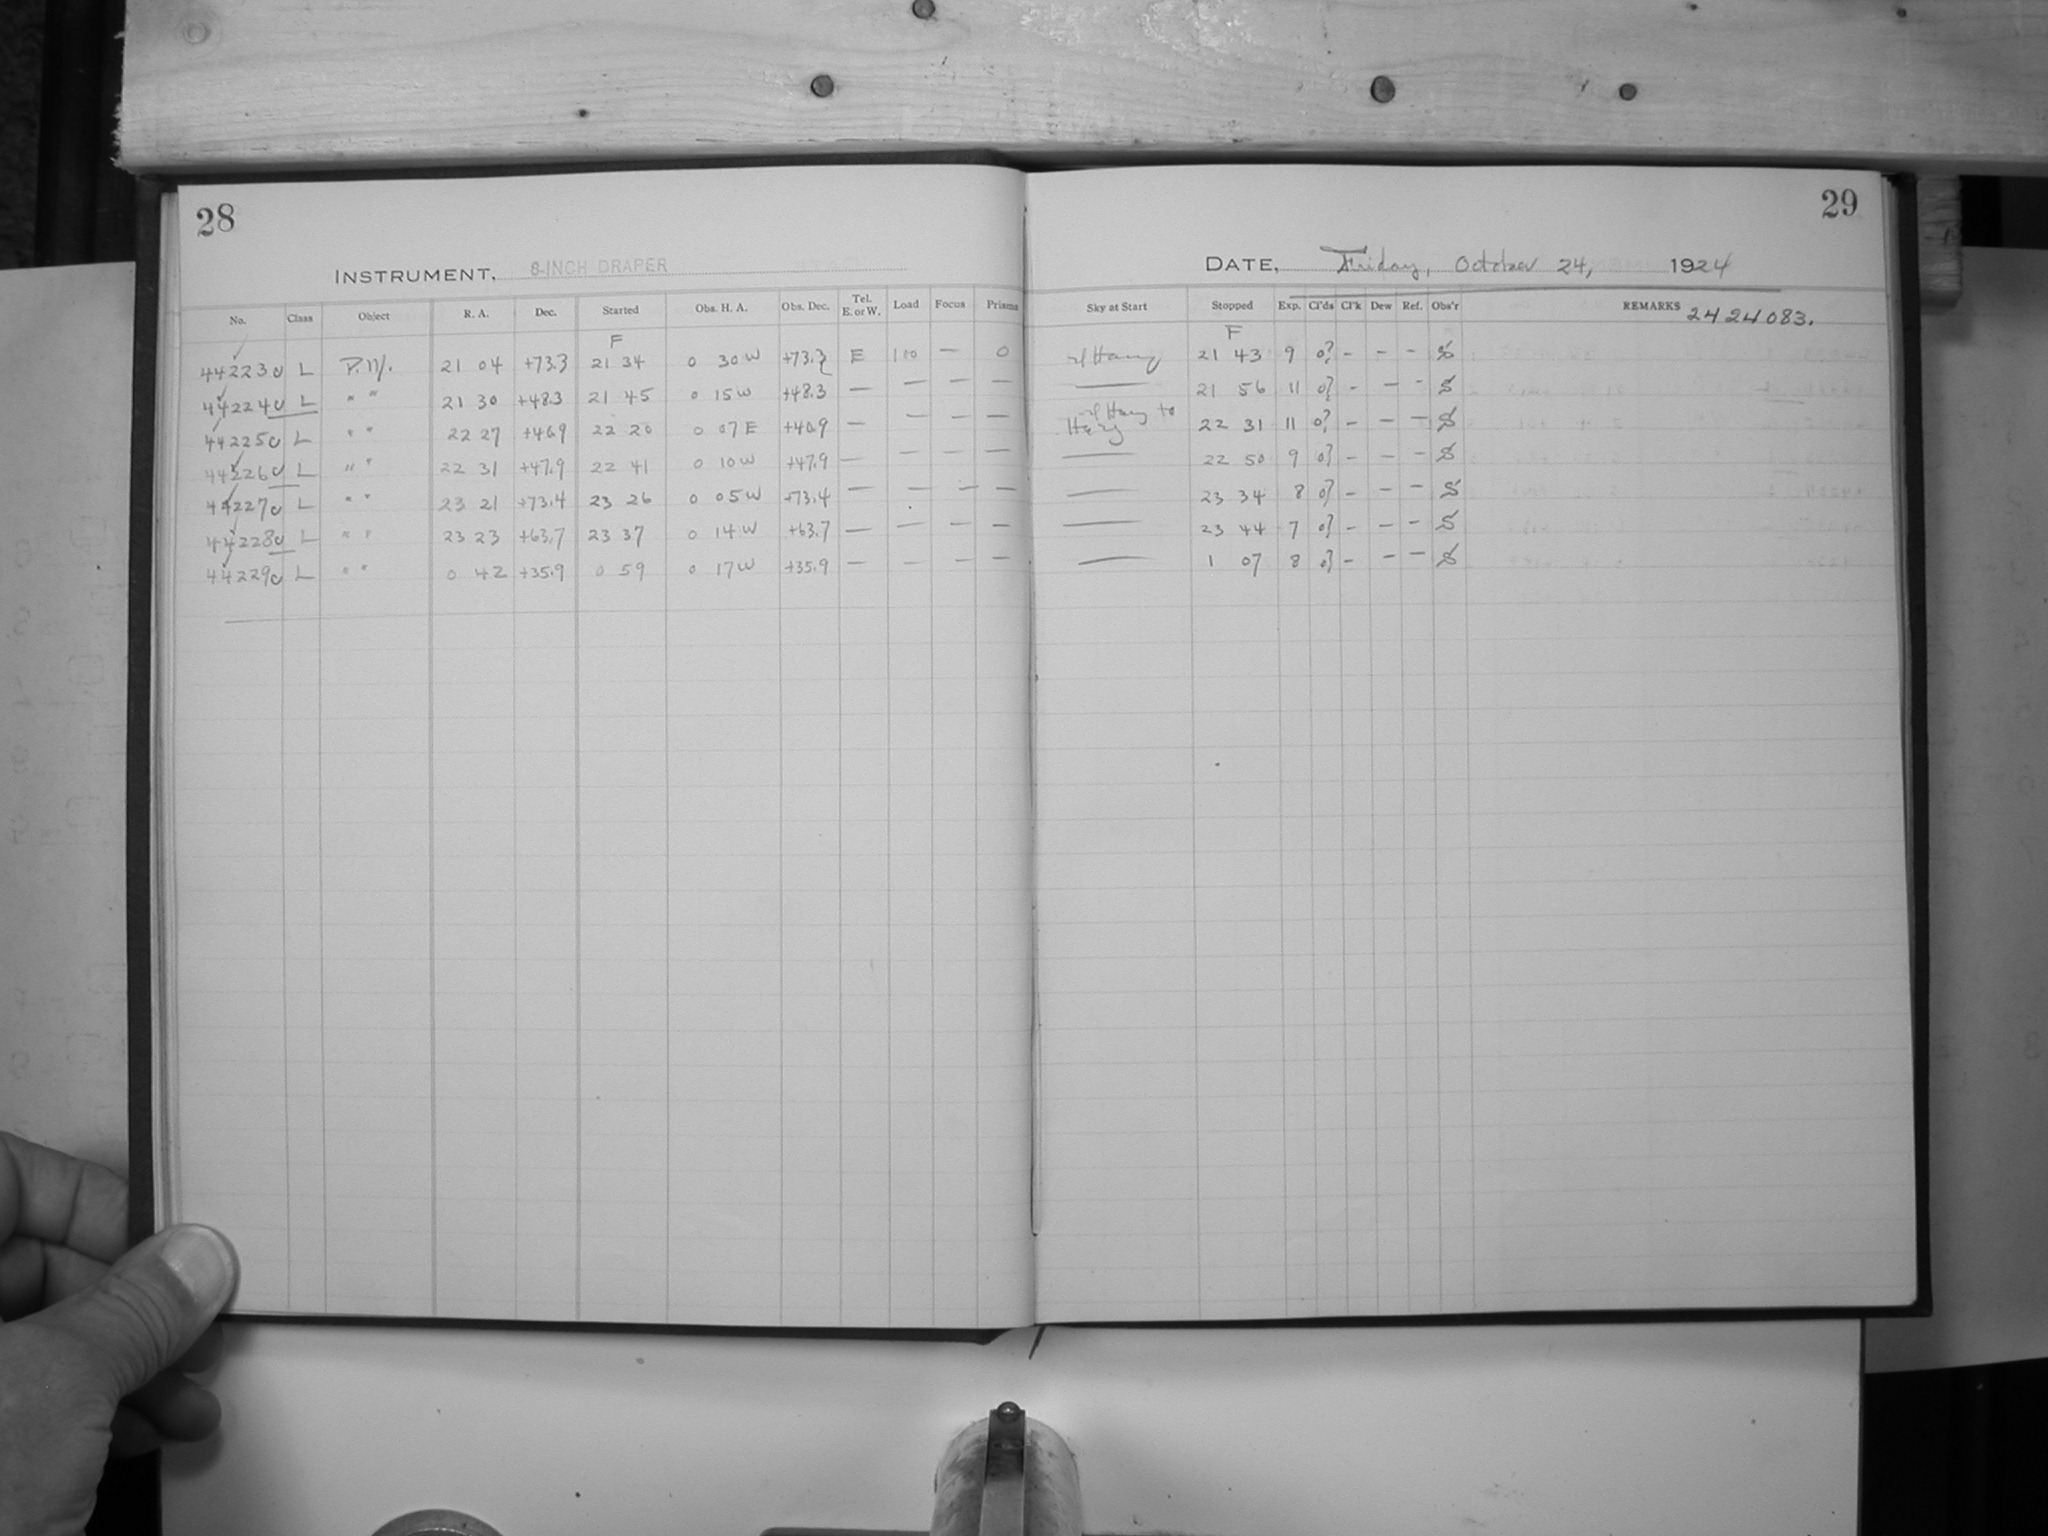 28
INSTRUMENT, 8-INCH DRAPER
No. Class Object R. A. Dec. Started Obs. H. A. Obs. Dec. Tel. E. or W. Load Focus Prisms
F
44223 L P.M. 21 04 +73.3 21 34 0 30 W +73.3 E 110 — 0
44224 L " " 21 30 +48.3 21 45 0 15 W +48.3 — — — —
44225 L " " 22 27 +40.9 22 20 0 07 E +40.9 — — — —
44226 L " " 22 31 +47.9 22 41 0 10 W +47.9 — — — —
44227 L " " 23 21 +73.4 23 26 0 05 W +73.4 — — — —
44228 L " " 23 23 +63.7 23 37 0 14 W +63.7 — — — —
44229 L " " 0 42 +35.9 0 59 0 17 W +35.9 — — — —
29
DATE, Friday, October 24, 1924
Sky at Start Stopped Exp. Cl'ds Cl'k Dew Ref. Obs'r REMARKS 2424083.
F
Hazy 21 43 9 0? - - - S
— 21 56 11 0? - - - S
Hazy to
Hazy 22 31 11 0? - - - S
— 22 50 9 0? - - - S
— 23 34 8 0? - - - S
— 23 44 7 0? - - - S
— 1 07 8 0? - - - S